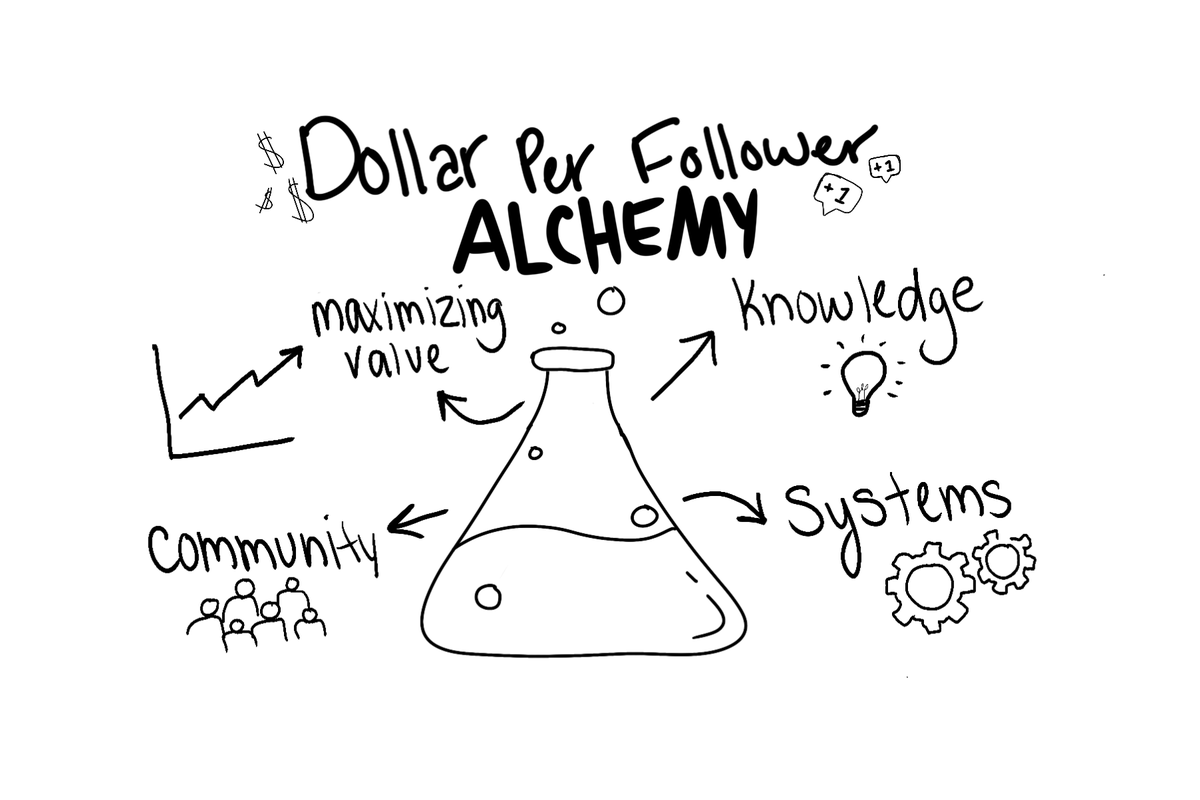 $ Dollar Per Follower
$ $
+1
+1
ALCHEMY
maximizing
value
Knowledge
Community
Systems